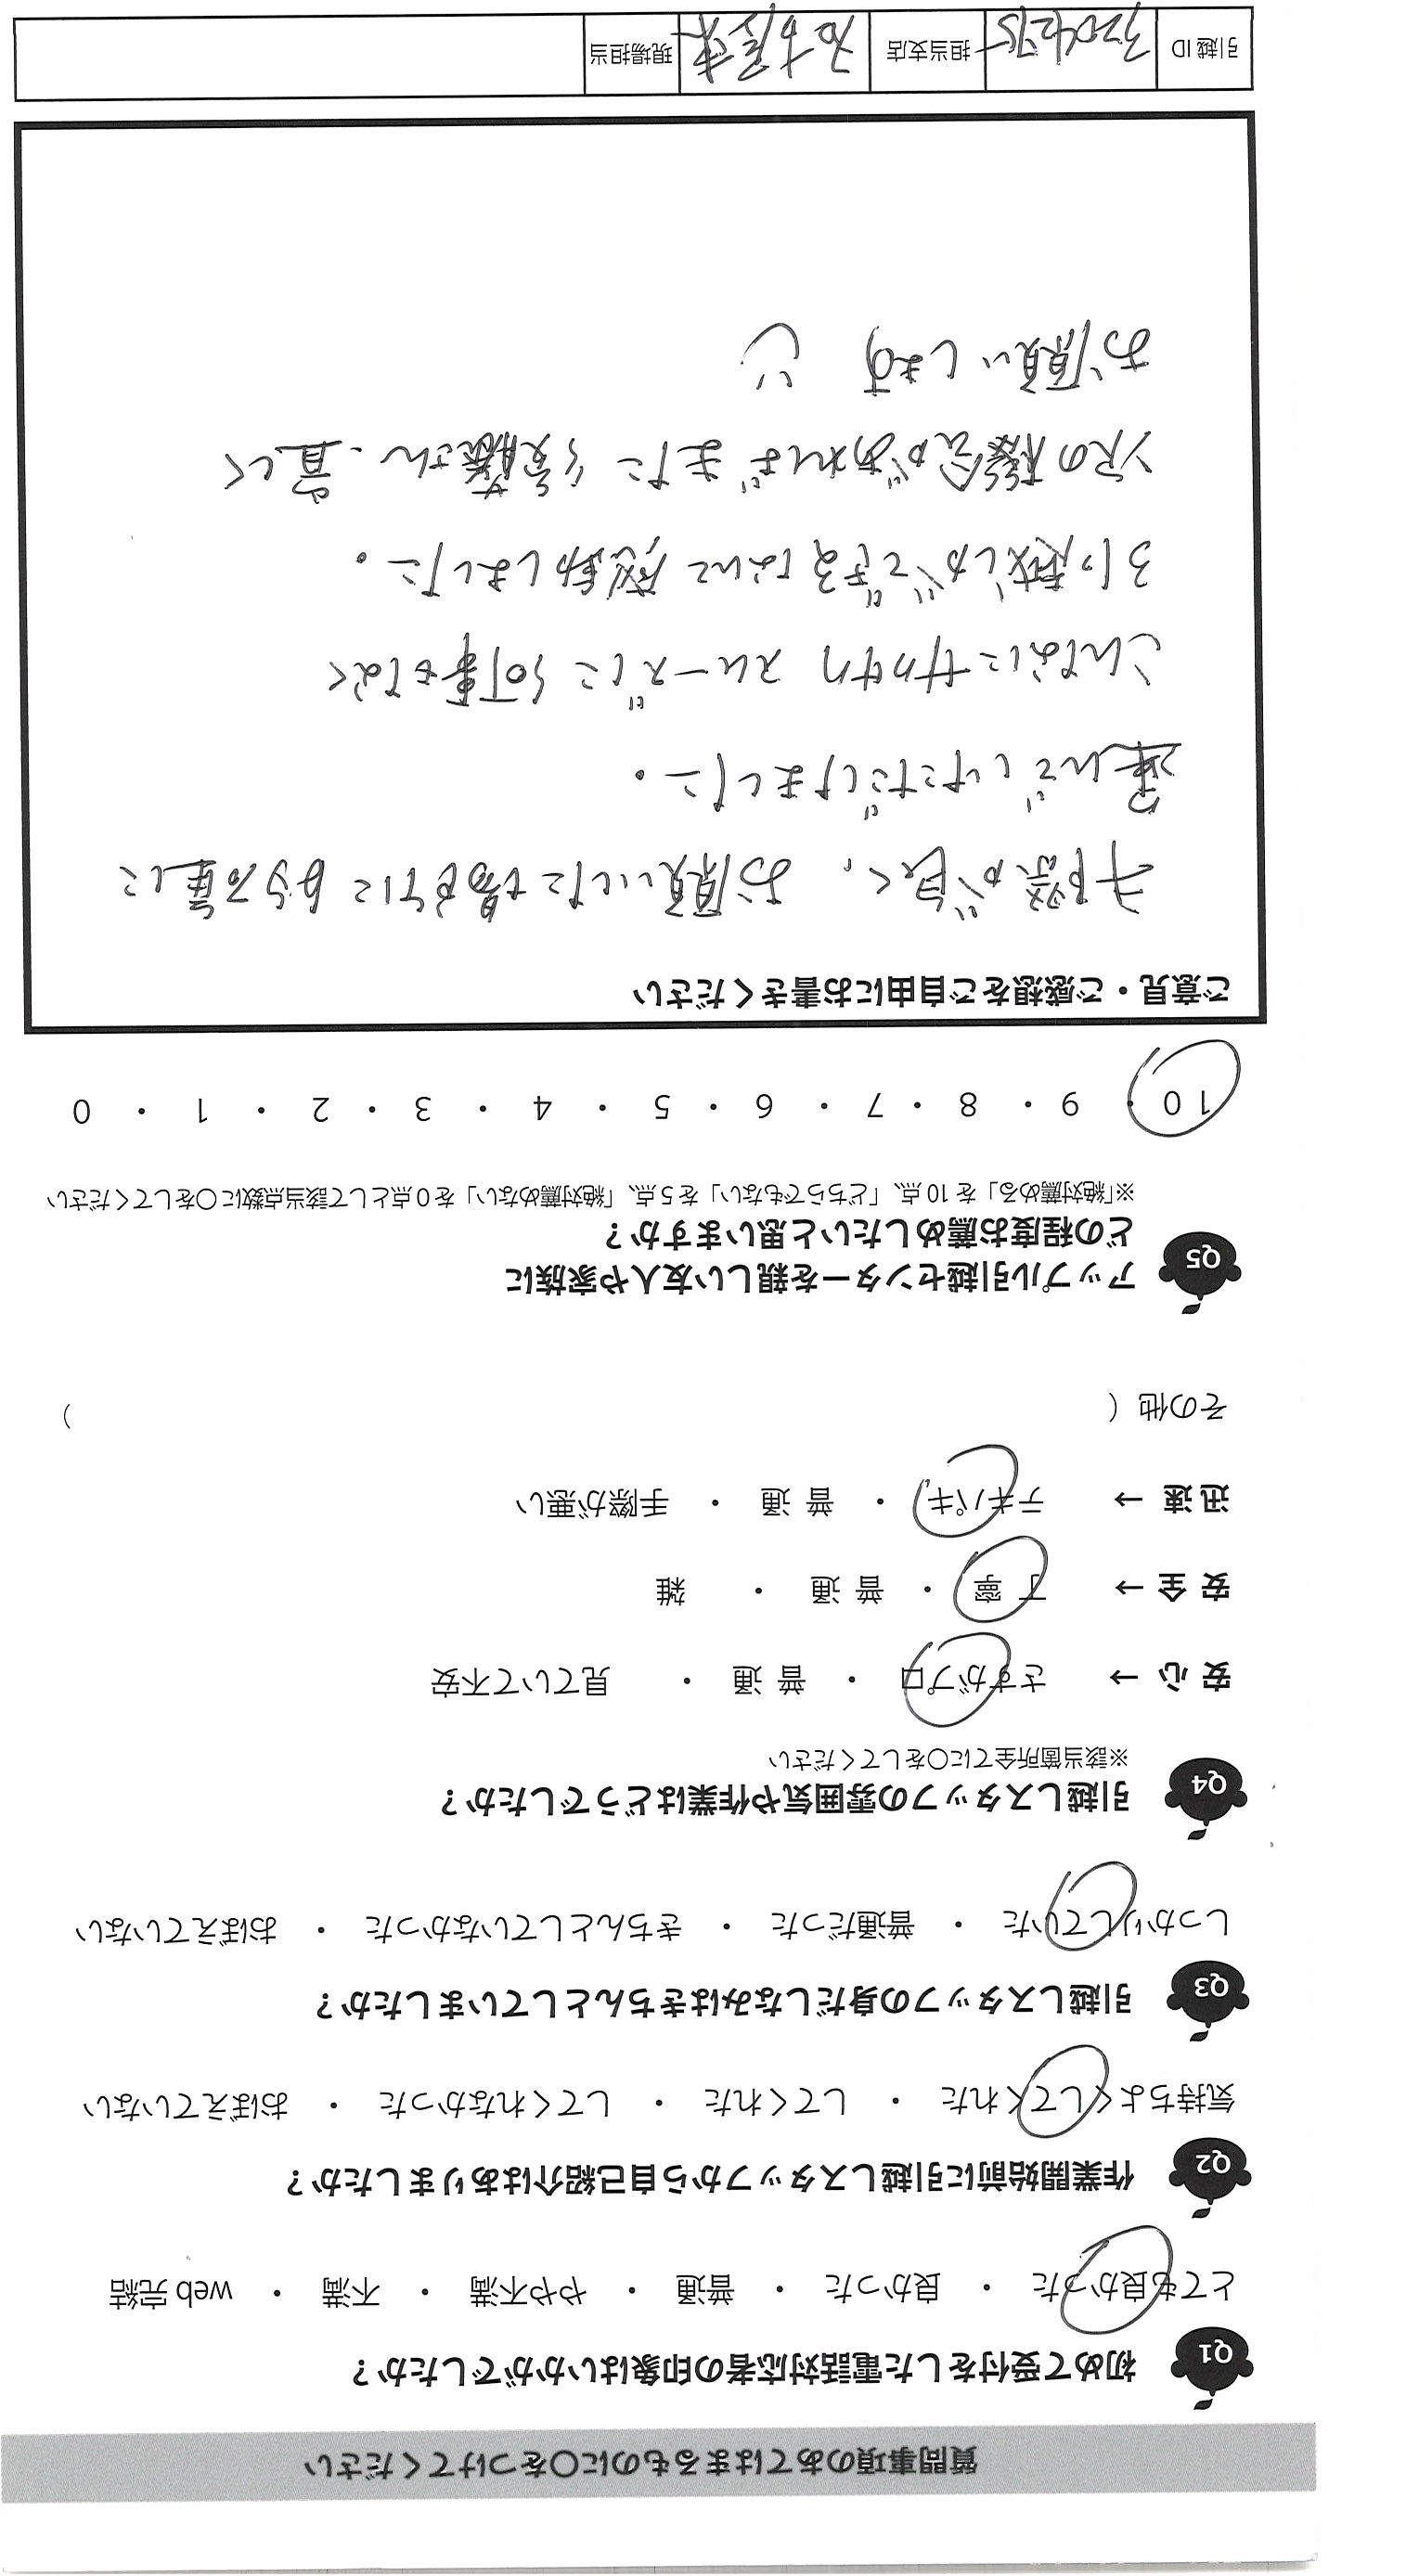 質問事項のあてはまるものに○をつけてください
Q1 初めて受付をした電話対応者の印象はいかがでしたか？
とても良かった ・ 良かった ・ 普通 ・ やや不満 ・ 不満 ・ web 完結
Q2 作業開始前に引越しスタッフから自己紹介はありましたか？
気持ちよくしてくれた ・ してくれた ・ してくれなかった ・ おぼえていない
Q3 引越しスタッフの身だしなみはきちんとしていましたか？
しっかりしていた ・ 普通だった ・ きちんとしていなかった ・ おぼえていない
Q4 引越しスタッフの雰囲気や作業はどうでしたか？
※該当箇所全てに○をしてください
安 心 → さすがプロ ・ 普 通 ・ 見ていて不安
安 全 → 丁 寧 ・ 普 通 ・ 雑
迅 速 → テキパキ ・ 普 通 ・ 手際が悪い
その他（ ）
Q5 アップル引越センターを親しい友人や家族に
どの程度お薦めしたいと思いますか？
※「絶対薦める」を 10 点、「どちらでもない」を 5 点、「絶対薦めない」を 0 点として該当点数に○をしてください
10 ・ 9 ・ 8 ・ 7 ・ 6 ・ 5 ・ 4 ・ 3 ・ 2 ・ 1 ・ 0
ご意見・ご感想をご自由にお書きください
手際が良く、お願いした場所に
運んでいただけました。
こんなにサクサク スムーズに 何事もなく
引っ越しができるなんて 感動しました。
次の機会があればまた 安藤さん、宜しく
お願いします
引越 ID 担当支店 名古屋 現場担当